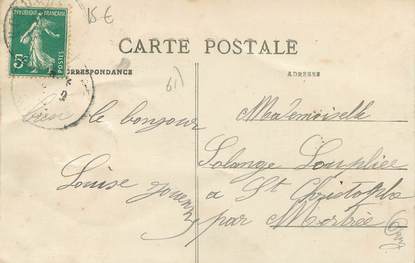 15 €
REPUBLIQUE FRANÇAISE
POSTES
CARTE POSTALE
CORRESPONDANCE
ADRESSE
61)
bien le bonjour
Louise
Mademoiselle
Solange
a St Christophe
par Mortrée
(Orne)